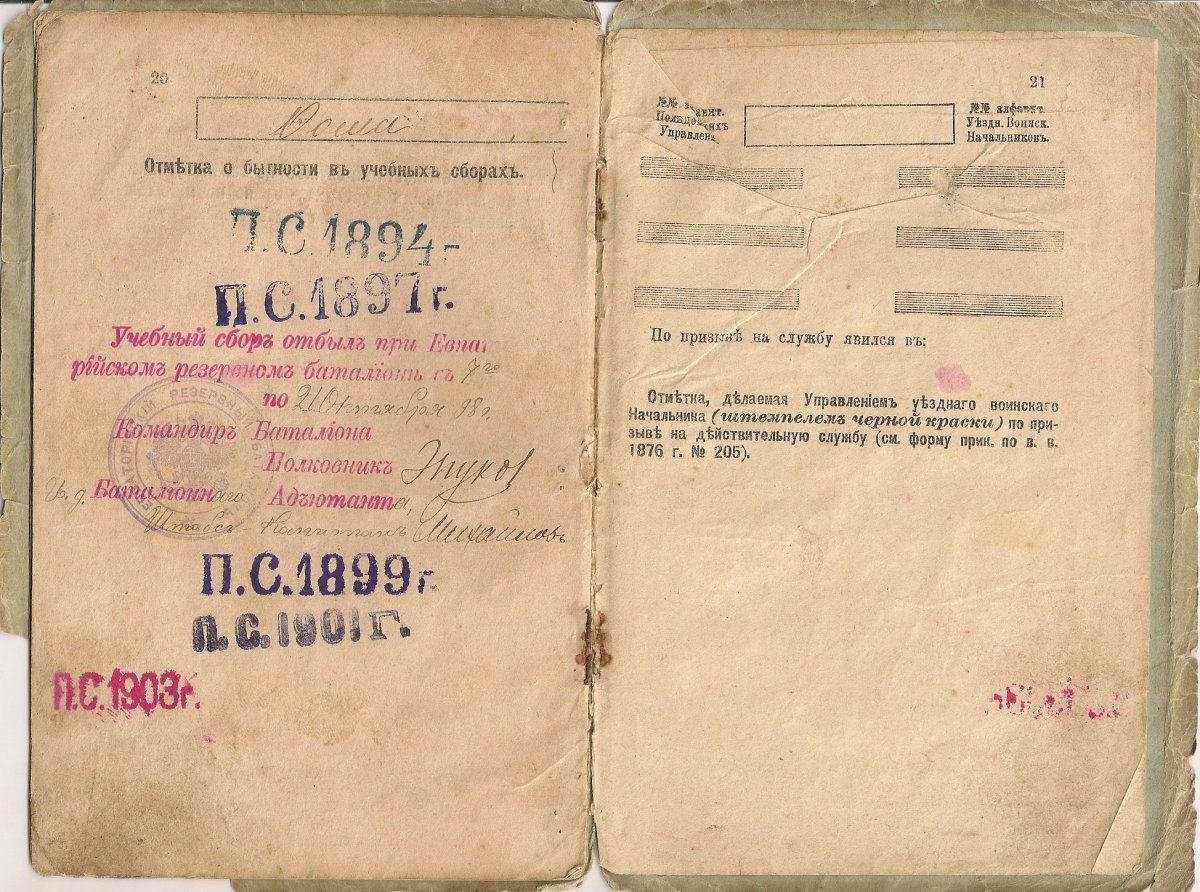 20
Отмѣтка о бытности въ учебныхъ сборахъ.
П.С.1894-
П.С.1897г.
Учебный сборъ отбылъ при Евпа
рійскомъ резервномъ баталіонѣ съ 7го
по 21 Октября 98 г.
Командиръ Баталіона
Полковникъ
И. д. Баталіоннаго Адъютанта,
Штабсъ-Капитанъ Михайловъ
РЕЗЕРВНЫЙ
П.С.1899г.
П.С.1901Г.
П.С.1903г.
21
№№ авит.
Полицейскихъ
Управлені
№№ алфавит.
Уѣздн. Воинск.
Начальниковъ.
По призывѣ на службу явился въ:
Отмѣтка, дѣлаемая Управленіемъ уѣзднаго воинскаго
Начальника (штемпелемъ черной краски) по при-
зывѣ на дѣйствительную службу (см. форму прик. по в. в.
1876 г. № 205).